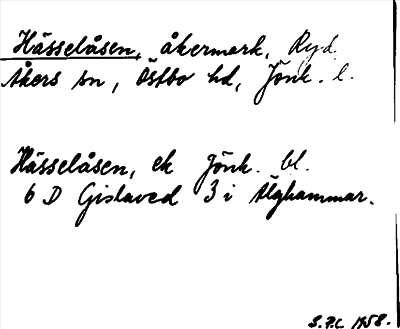 Hässelåsen, åkermark, Ryd.
Åkers sn, Östbo hd, Jönk. l.
Hässelåsen, ek Jönk. bl.
6 D Gislaved 3 i Älghammar.
S.P.C. 1958.